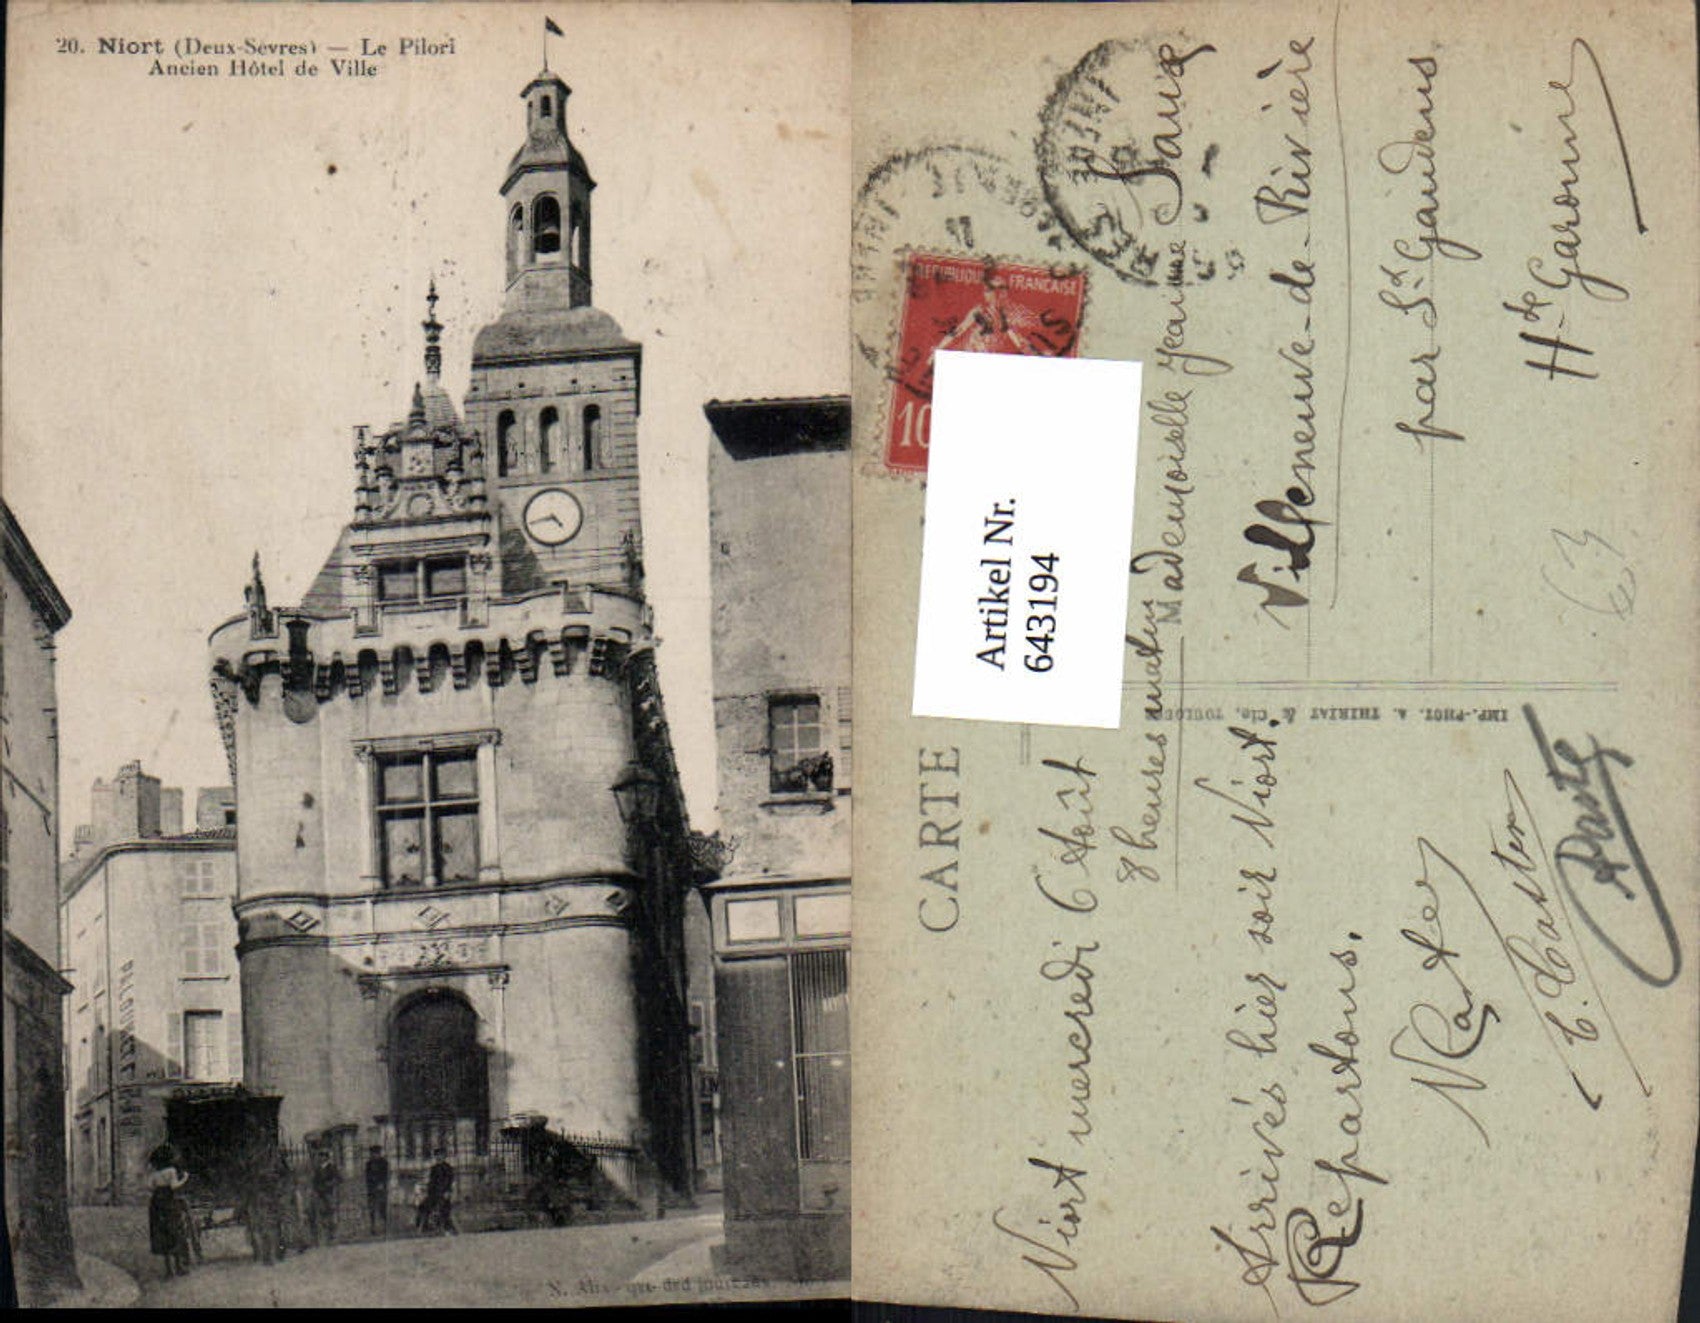 20. Niort (Deux-Sèvres) — Le Pilori
Ancien Hôtel de Ville
REPUBLIQUE FRANCAISE
10
Artikel Nr.
643194
CARTE
IMP.-PHOT. A. THIRIAT & Cie, TOULOUSE
Niort mercredi 6 Août
8 heures matin
Arrivés hier soir Niort.
Repartons.
C. Castex
Mademoiselle Jeanne
Villeneuve-de-Rivière
par St Gaudens
Hte Garonne
63